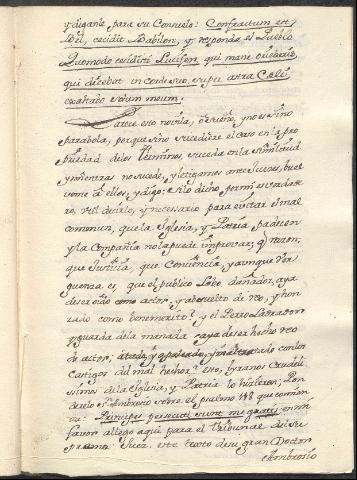 y digan te para su Consuelo: Confractum est
Bel, cecidit Babilon, y responda el Pueblo
Quomodo cecidisti Lucifer, qui mane oriebaris,
qui dicebat in corde suo, super astra Celi
exaltabo solium meum.
Parece esto novela, Señor, y no es sino
parabola, porque sino sucediere el caso en la pro
piedad de los terminos, suceda en la similitud
y mientras no sucede, y letigamos ante Jueces, buel
vome à ellos, y digo: si lo dicho por mi es verdade
ro, util decirlo, y necesario para evitar el mal
comun, que la Iglesia, y Patria padecen
y la Compañia no la puede improvar; q razon,
que Justicia, que Conciencia, y aunque Ver
guenza es, que el publico Lobo, dañador, aya
de ser oido como actor, y absuelto de reo, y hon
rado como benemerito? y el Perro Labrador
y guarda de la manada aya de ser hecho reo
de actor, y maltratado con los
Castigos del mal hechor? esto, tyranos Crudeli
simos de la Iglesia, y Patria lo hicieron; Pon
deselo Sn Ambrosio sobre el psalmo 118 que comien
za: Principes persecuti sunt me gratis, en mi
favor allego aqui para el Tribunal del Su
premo Juez, este texto de su gran Doctor
Ambrosio